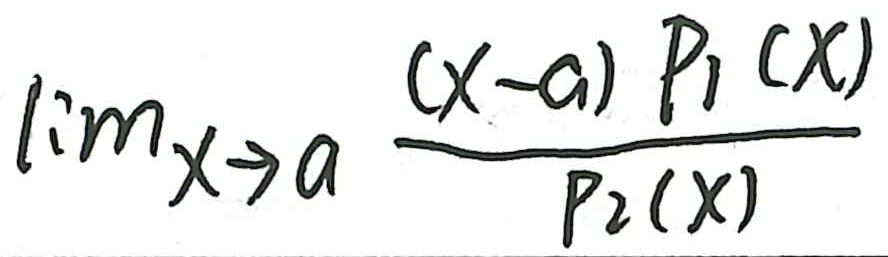 lim x→a (x-a) P₁(x) / P₂(x)